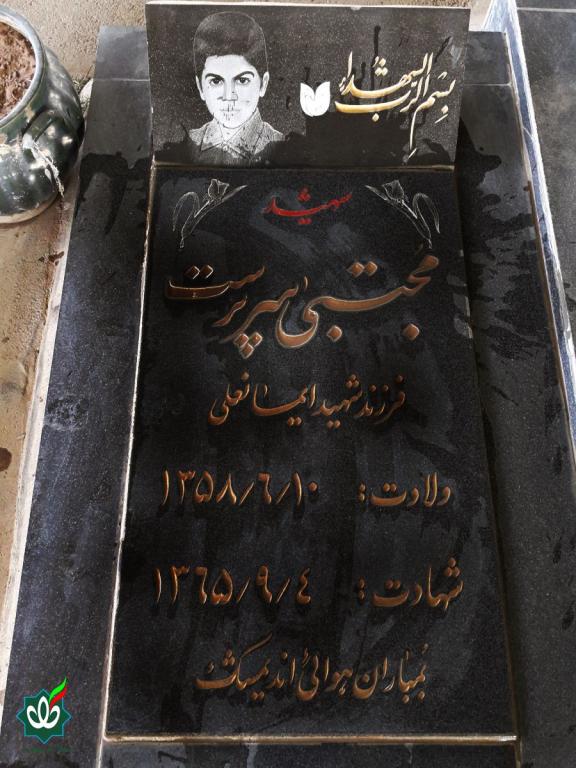 بسم الرب الشهداء
شهید
مجتبی سرپرست
فرزند شهید ایمانعلی
ولادت: ۱۳۵۸/۶/۱۰
شهادت: ۱۳۶۵/۹/۴
بمباران هوائی اندیمشک